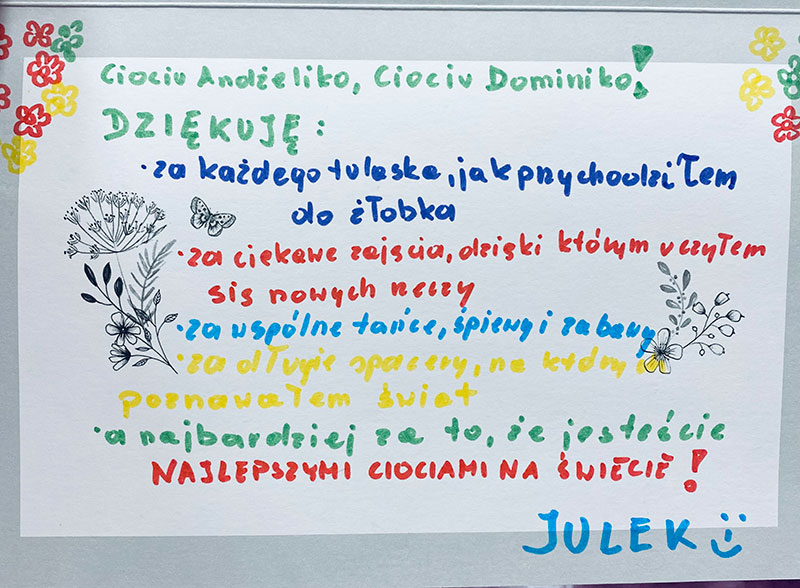 Ciociu Andżeliko, Ciociu Dominiko!
DZIĘKUJĘ:
· za każdego tulaska, jak przychodziłem
do żłobka
· za ciekawe zajęcia, dzięki którym uczyłem
się nowych rzeczy
· za wspólne tańce, śpiewy i zabawy
· za długie spacery, na których
poznawałem świat
· a najbardziej za to, że jesteście
NAJLEPSZYMI CIOCIAMI NA ŚWIECIE!
JULEK